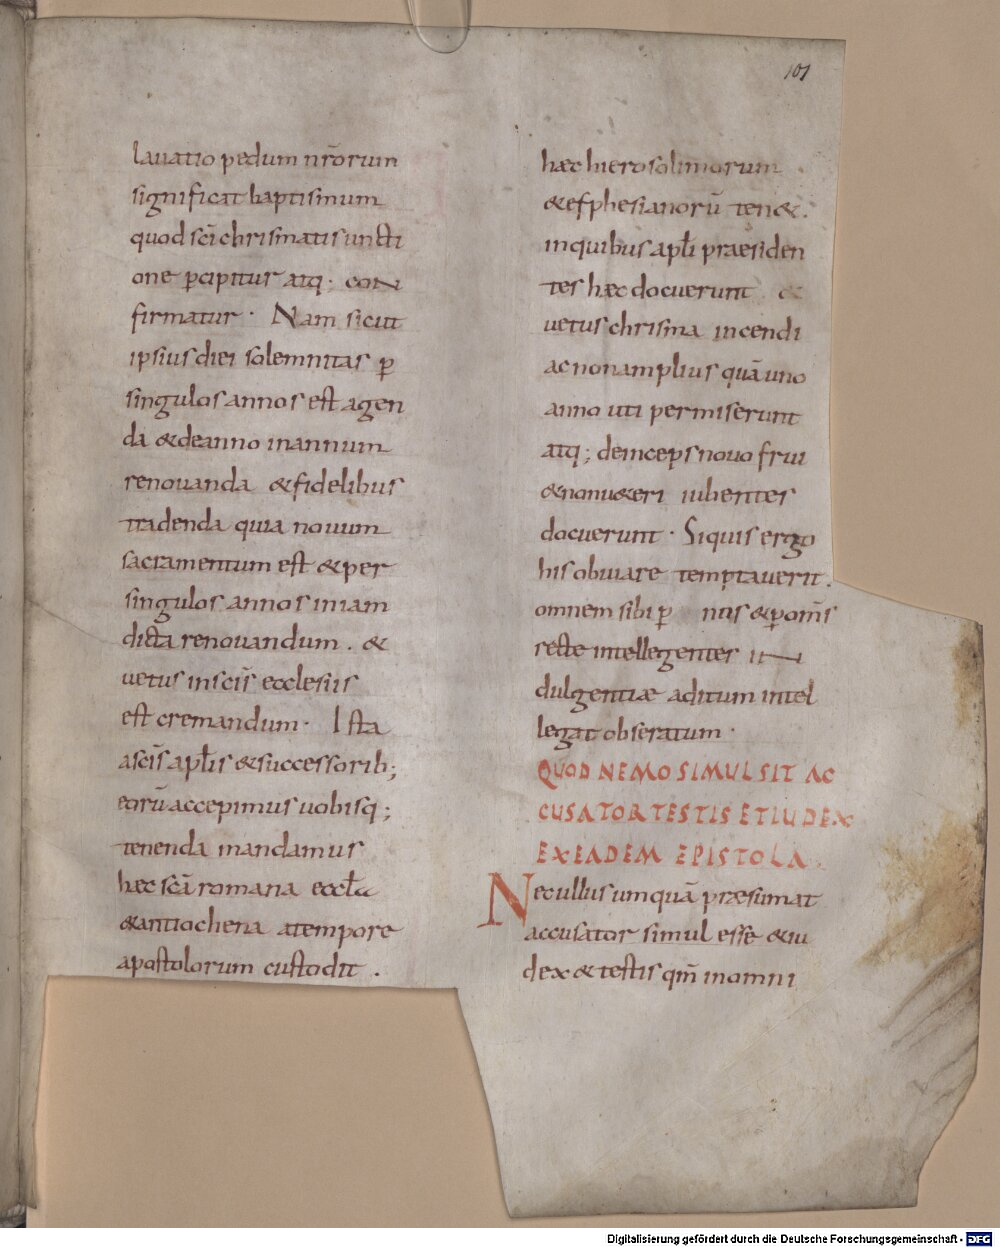 101
lauatio pedum nr̄orum
significat baptismum
quod sc̄i chrismatis uncti
one ꝑcipitur atq; con
firmatur · Nam sicut
ipsius diei solemnitas ꝑ
singulos annos est agen
da & de anno in annum
renouanda & fidelibus
tradenda quia nouum
sacramentum est & per
singulos annos in iam
dicta renouandum . &
uetus in scīs ecclesiis
est cremandum · Ista
a scīs apłis & successorib;
eorū accepimus uobisq;
tenenda mandamus
haec scā romana eccła
& antiochena a tempore
apostolorum custodit .
haec hierosolimorum
& efphesianorū ten& .
in quibus apłi praesiden
tes haec docuerunt &
uetus chrisma incendi
ac non amplius quā uno
anno uti permiserunt
atq; deinceps nouo frui
& non u&eri iubentes
docuerunt · Siquis ergo
his obuiare temptauerit .
omnem sibi ꝑ nus & ꝑ om̄s
recte intellegentes in
dulgentiae aditum intel
legat obseratum ·
QUOD NEMO SIMUL SIT AC
CUSATOR TESTIS ET IUDEX
EX EADEM EPISTOLA
Nec ullus umquā praesumat
accusator simul esse & iu
dex & testis qm̄ in omni
Digitalisierung gefördert durch die Deutsche Forschungsgemeinschaft - DFG